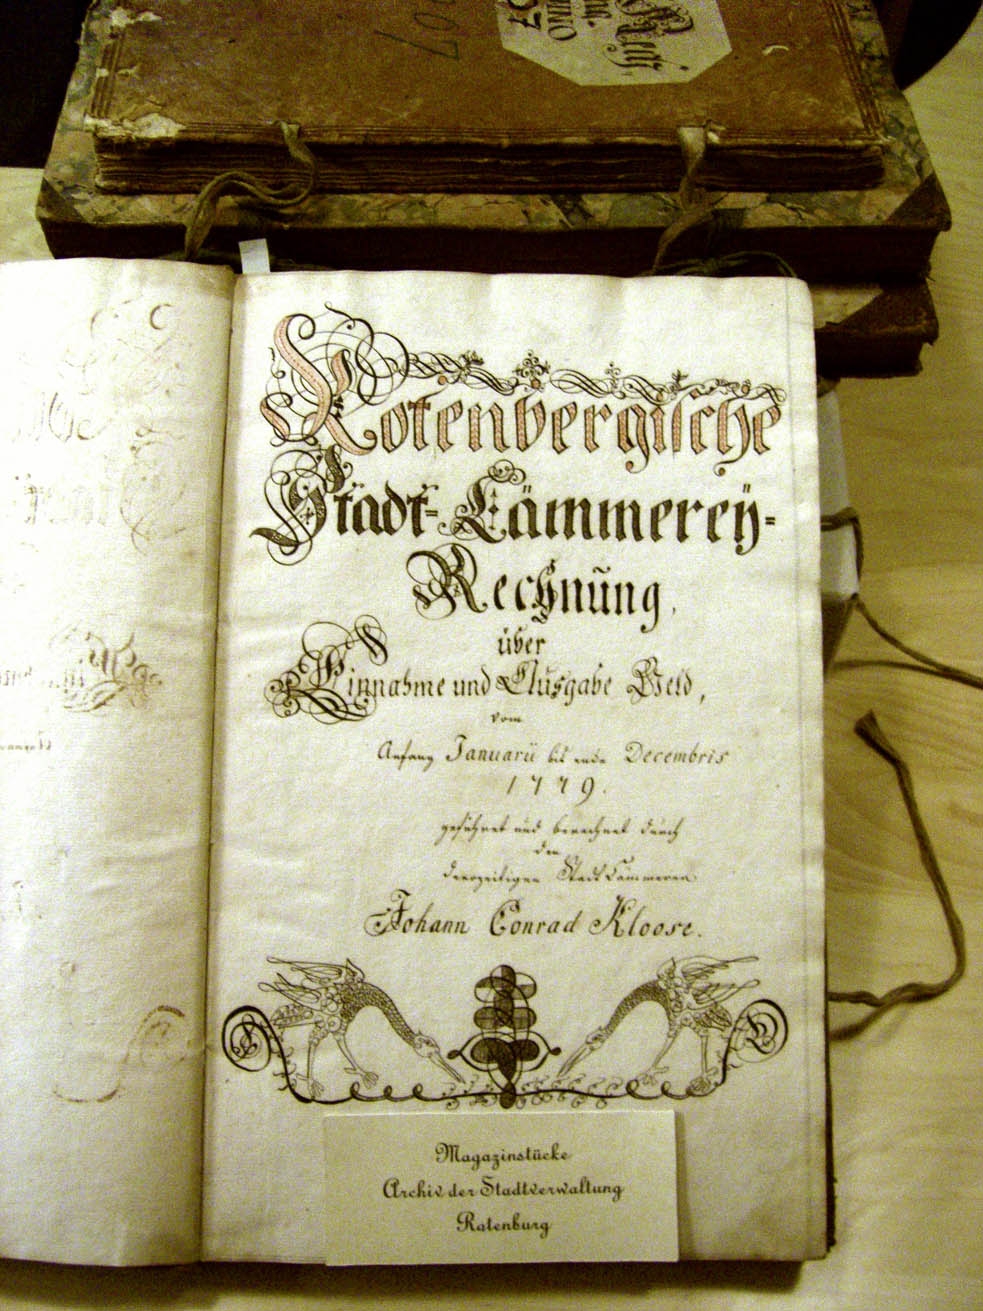 Rotenbergische
Stadt-Cämmereÿ-
Rechnung,
über
Einnahme und Ausgabe Geld,
vom
Anfang Januarii bis ende Decembris
1779.
geführet und berechnet durch
den
derzeitigen Stadt Cämmerern
Johann Conrad Kloose.
Magazinstücke
Archiv der Stadtverwaltung
Ratenburg